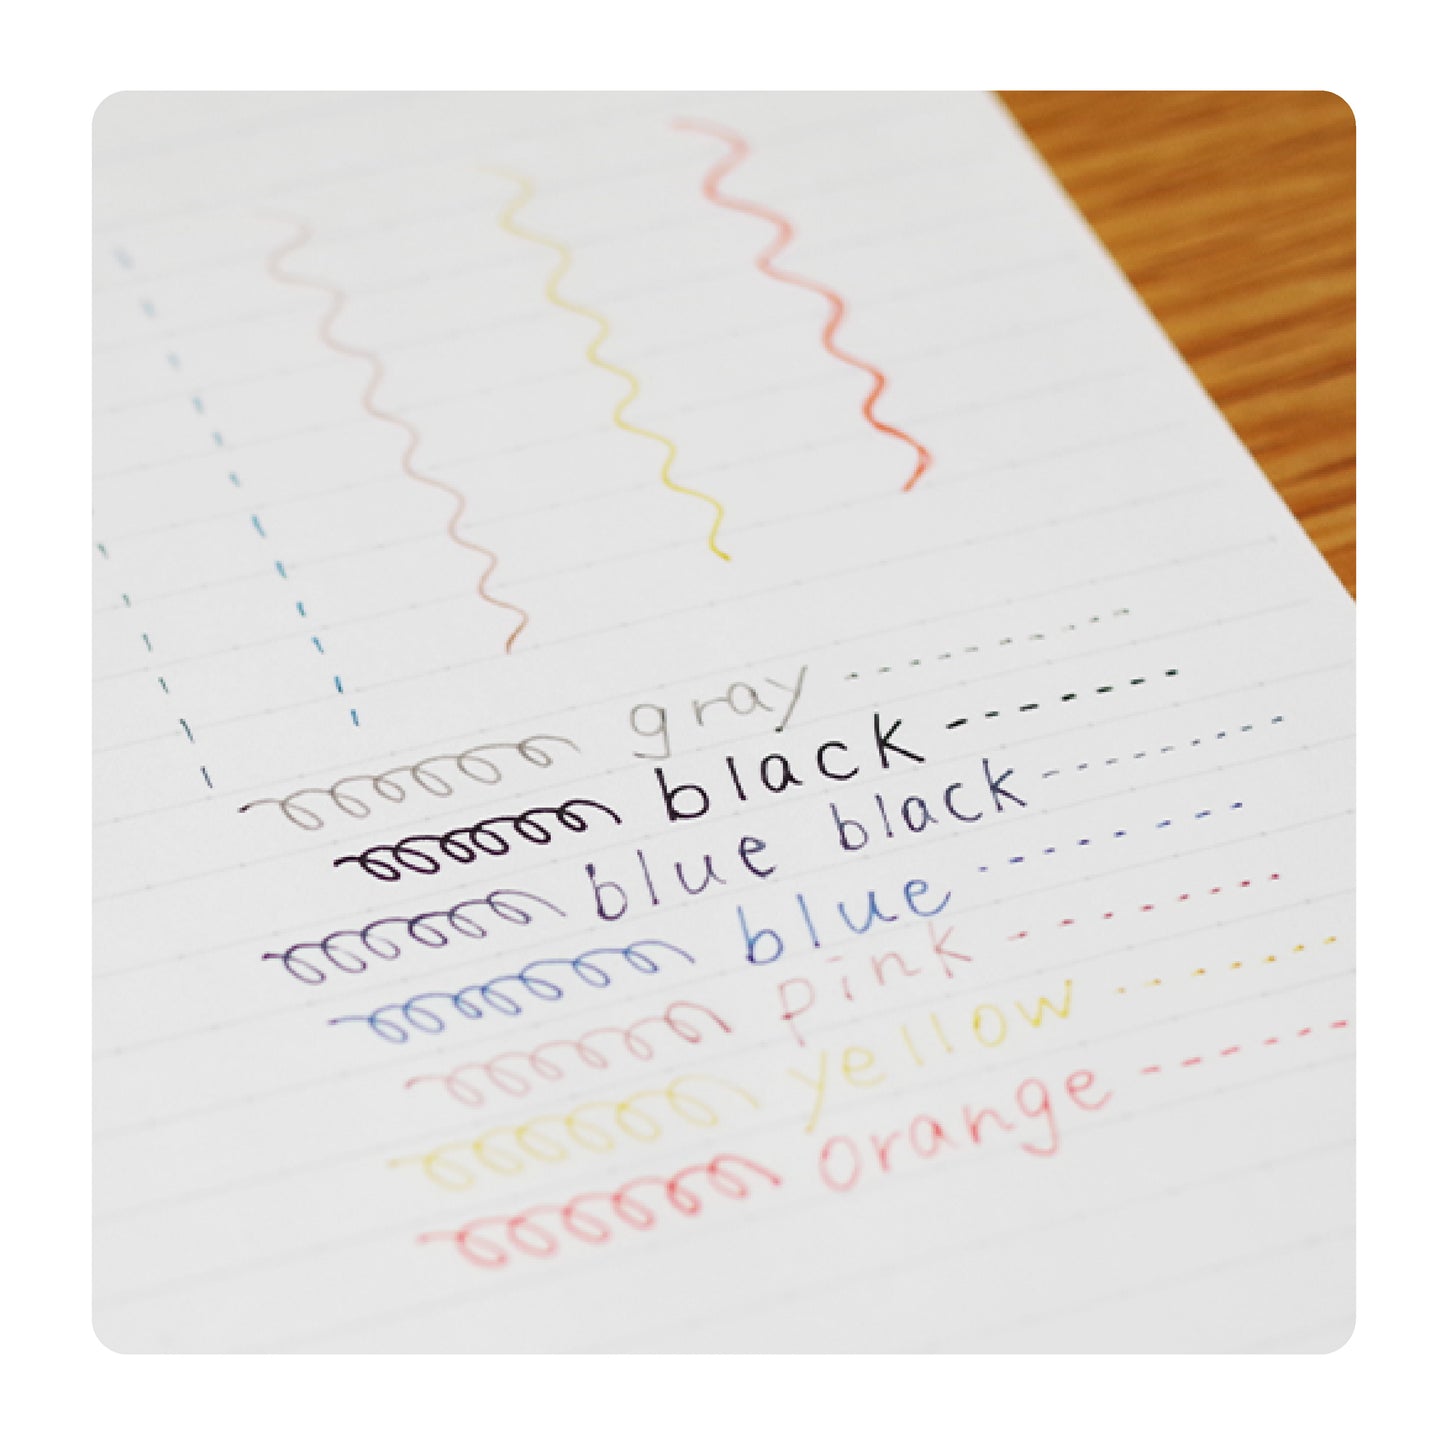 gray
black
blue black
blue
pink
yellow
orange